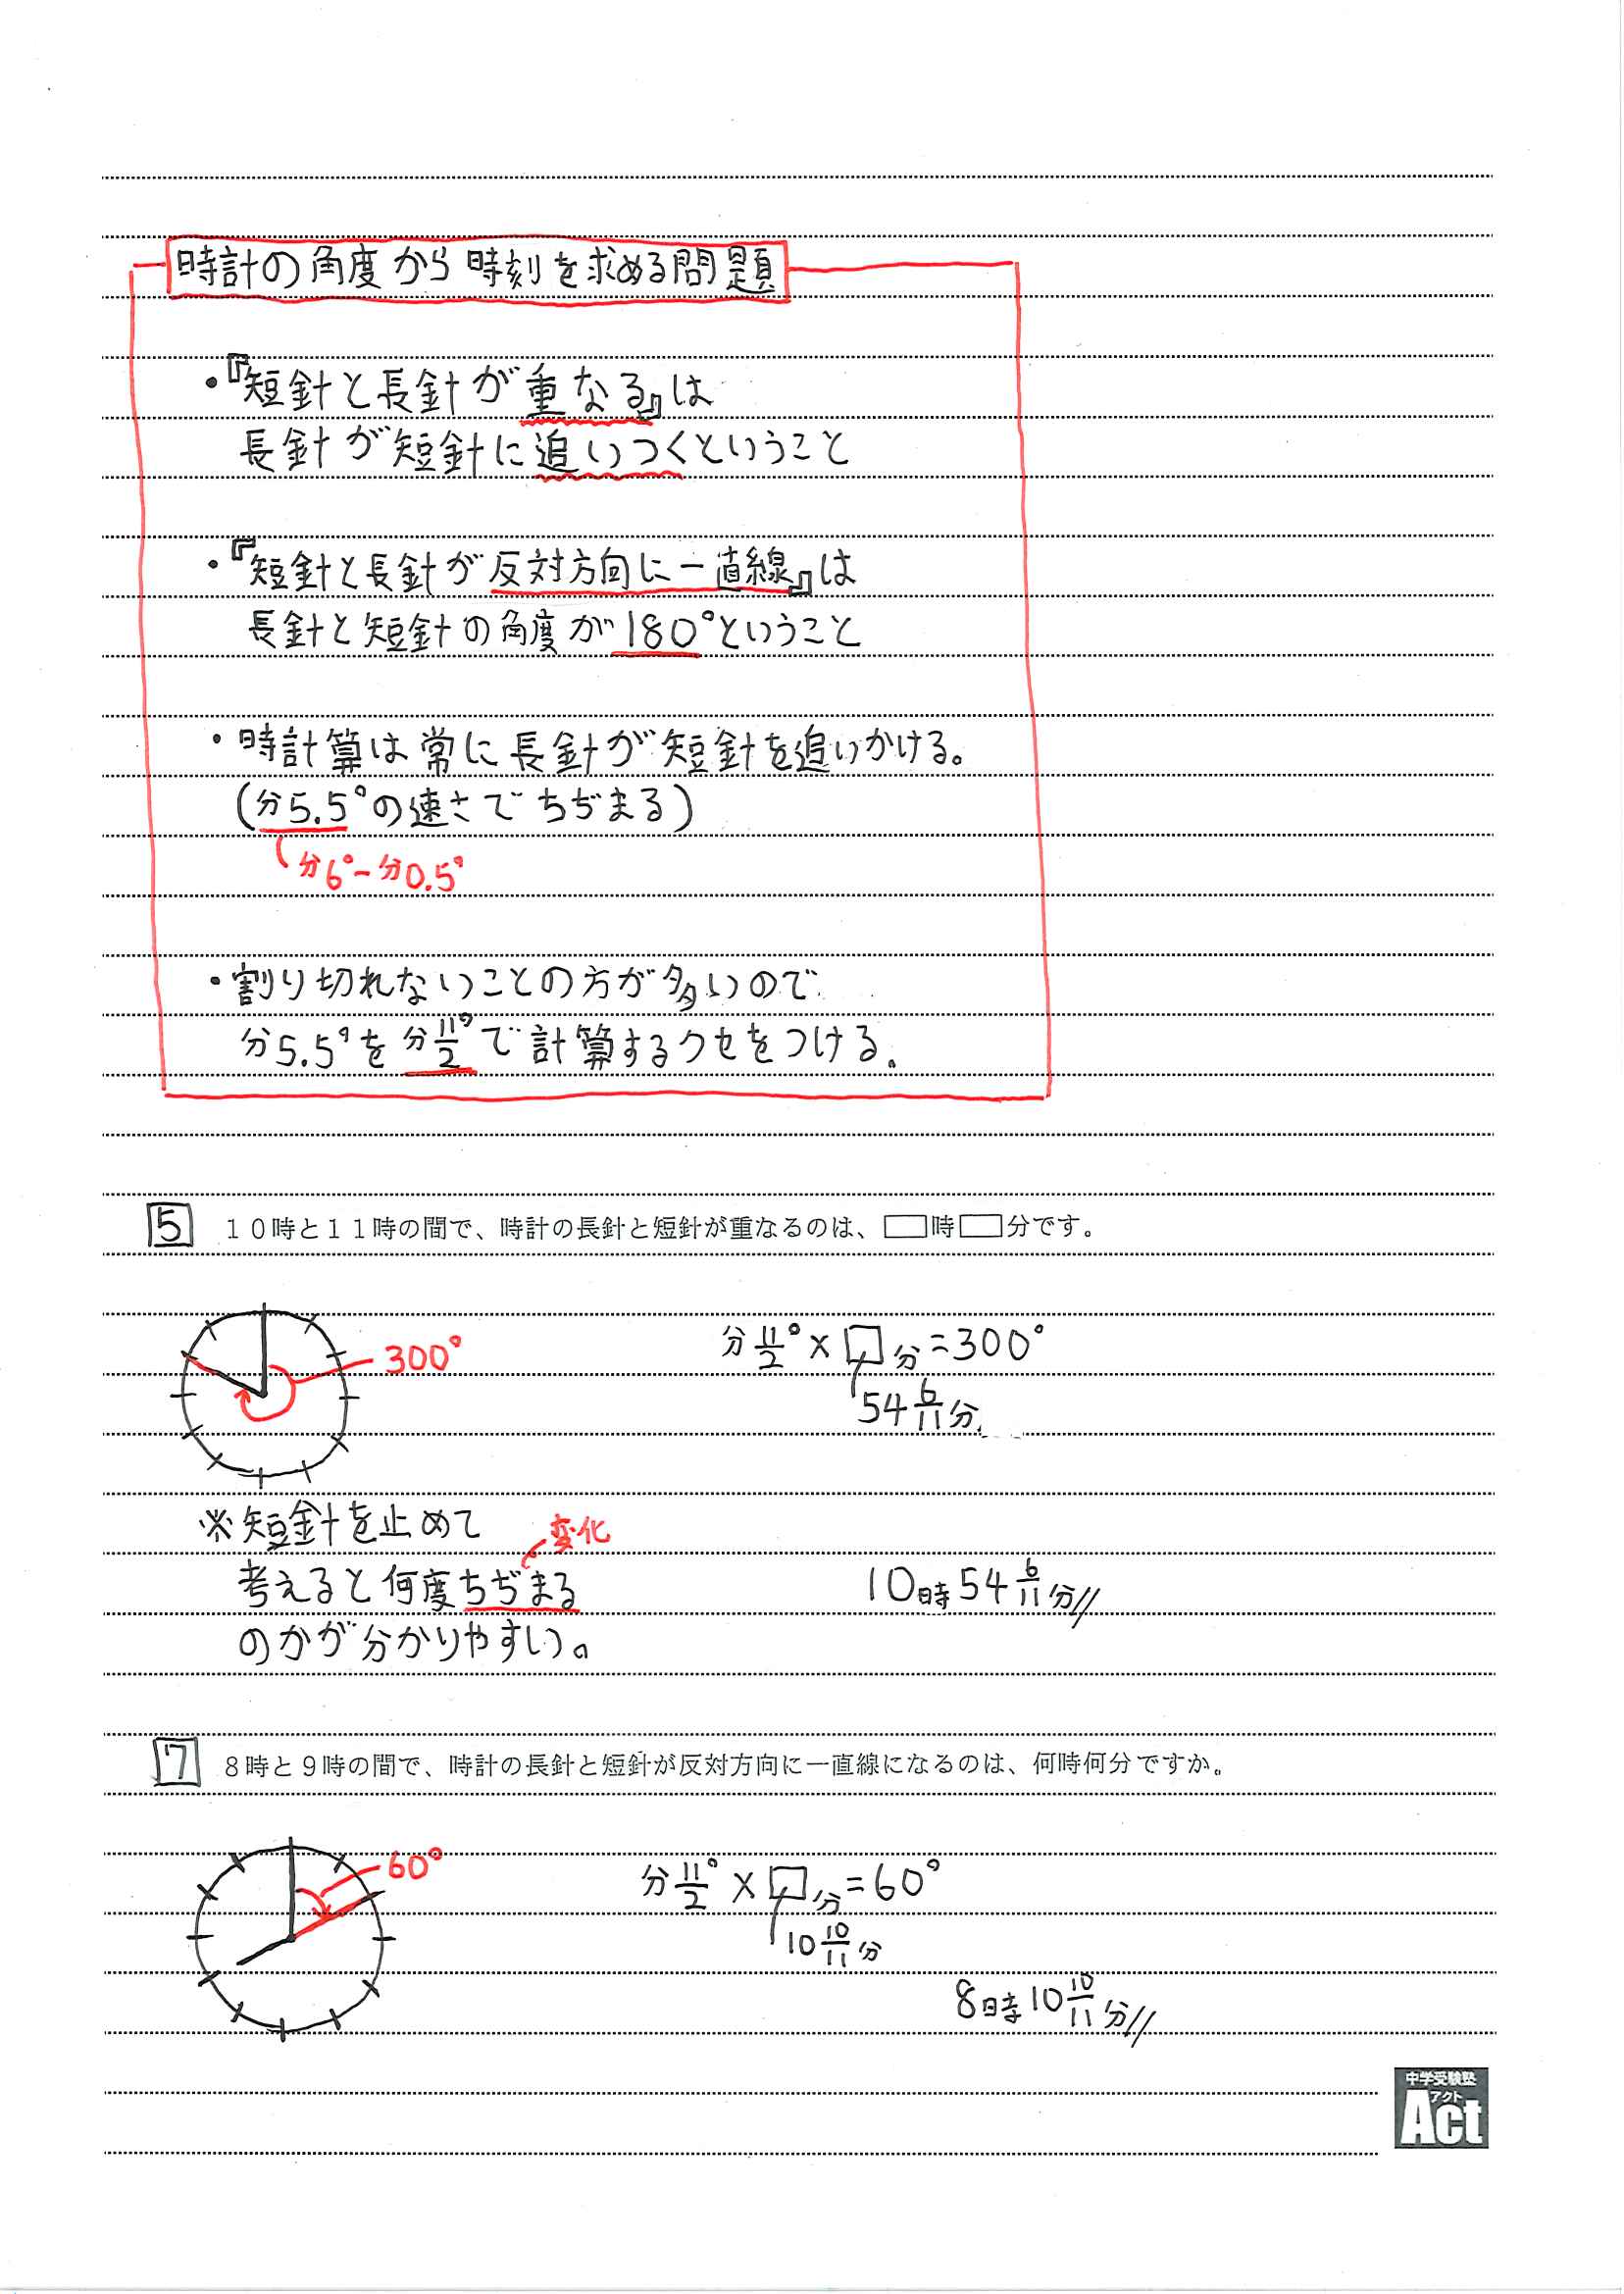 時計の角度から時刻を求める問題
・『短針と長針が重なる』は
長針が短針に追いつくということ
・『短針と長針が反対方向に一直線』は
長針と短針の角度が180°ということ
・時計算は常に長針が短針を追いかける。
(分5.5°の速さでちぢまる)
分6°-分0.5°
・割り切れないことの方が多いので
分5.5°を分11/2°で計算するクセをつける。
5 10時と11時の間で、時計の長針と短針が重なるのは、□時□分です。
300°
分11/2°×□分=300°
54 6/11分
※短針を止めて
変化
考えると何度ちぢまる
のかが分かりやすい。
10時54 6/11分//
7 8時と9時の間で、時計の長針と短針が反対方向に一直線になるのは、何時何分ですか。
60°
分11/2°×□分=60°
10 10/11分
8時10 10/11分//
中学受験塾
アクト
Act